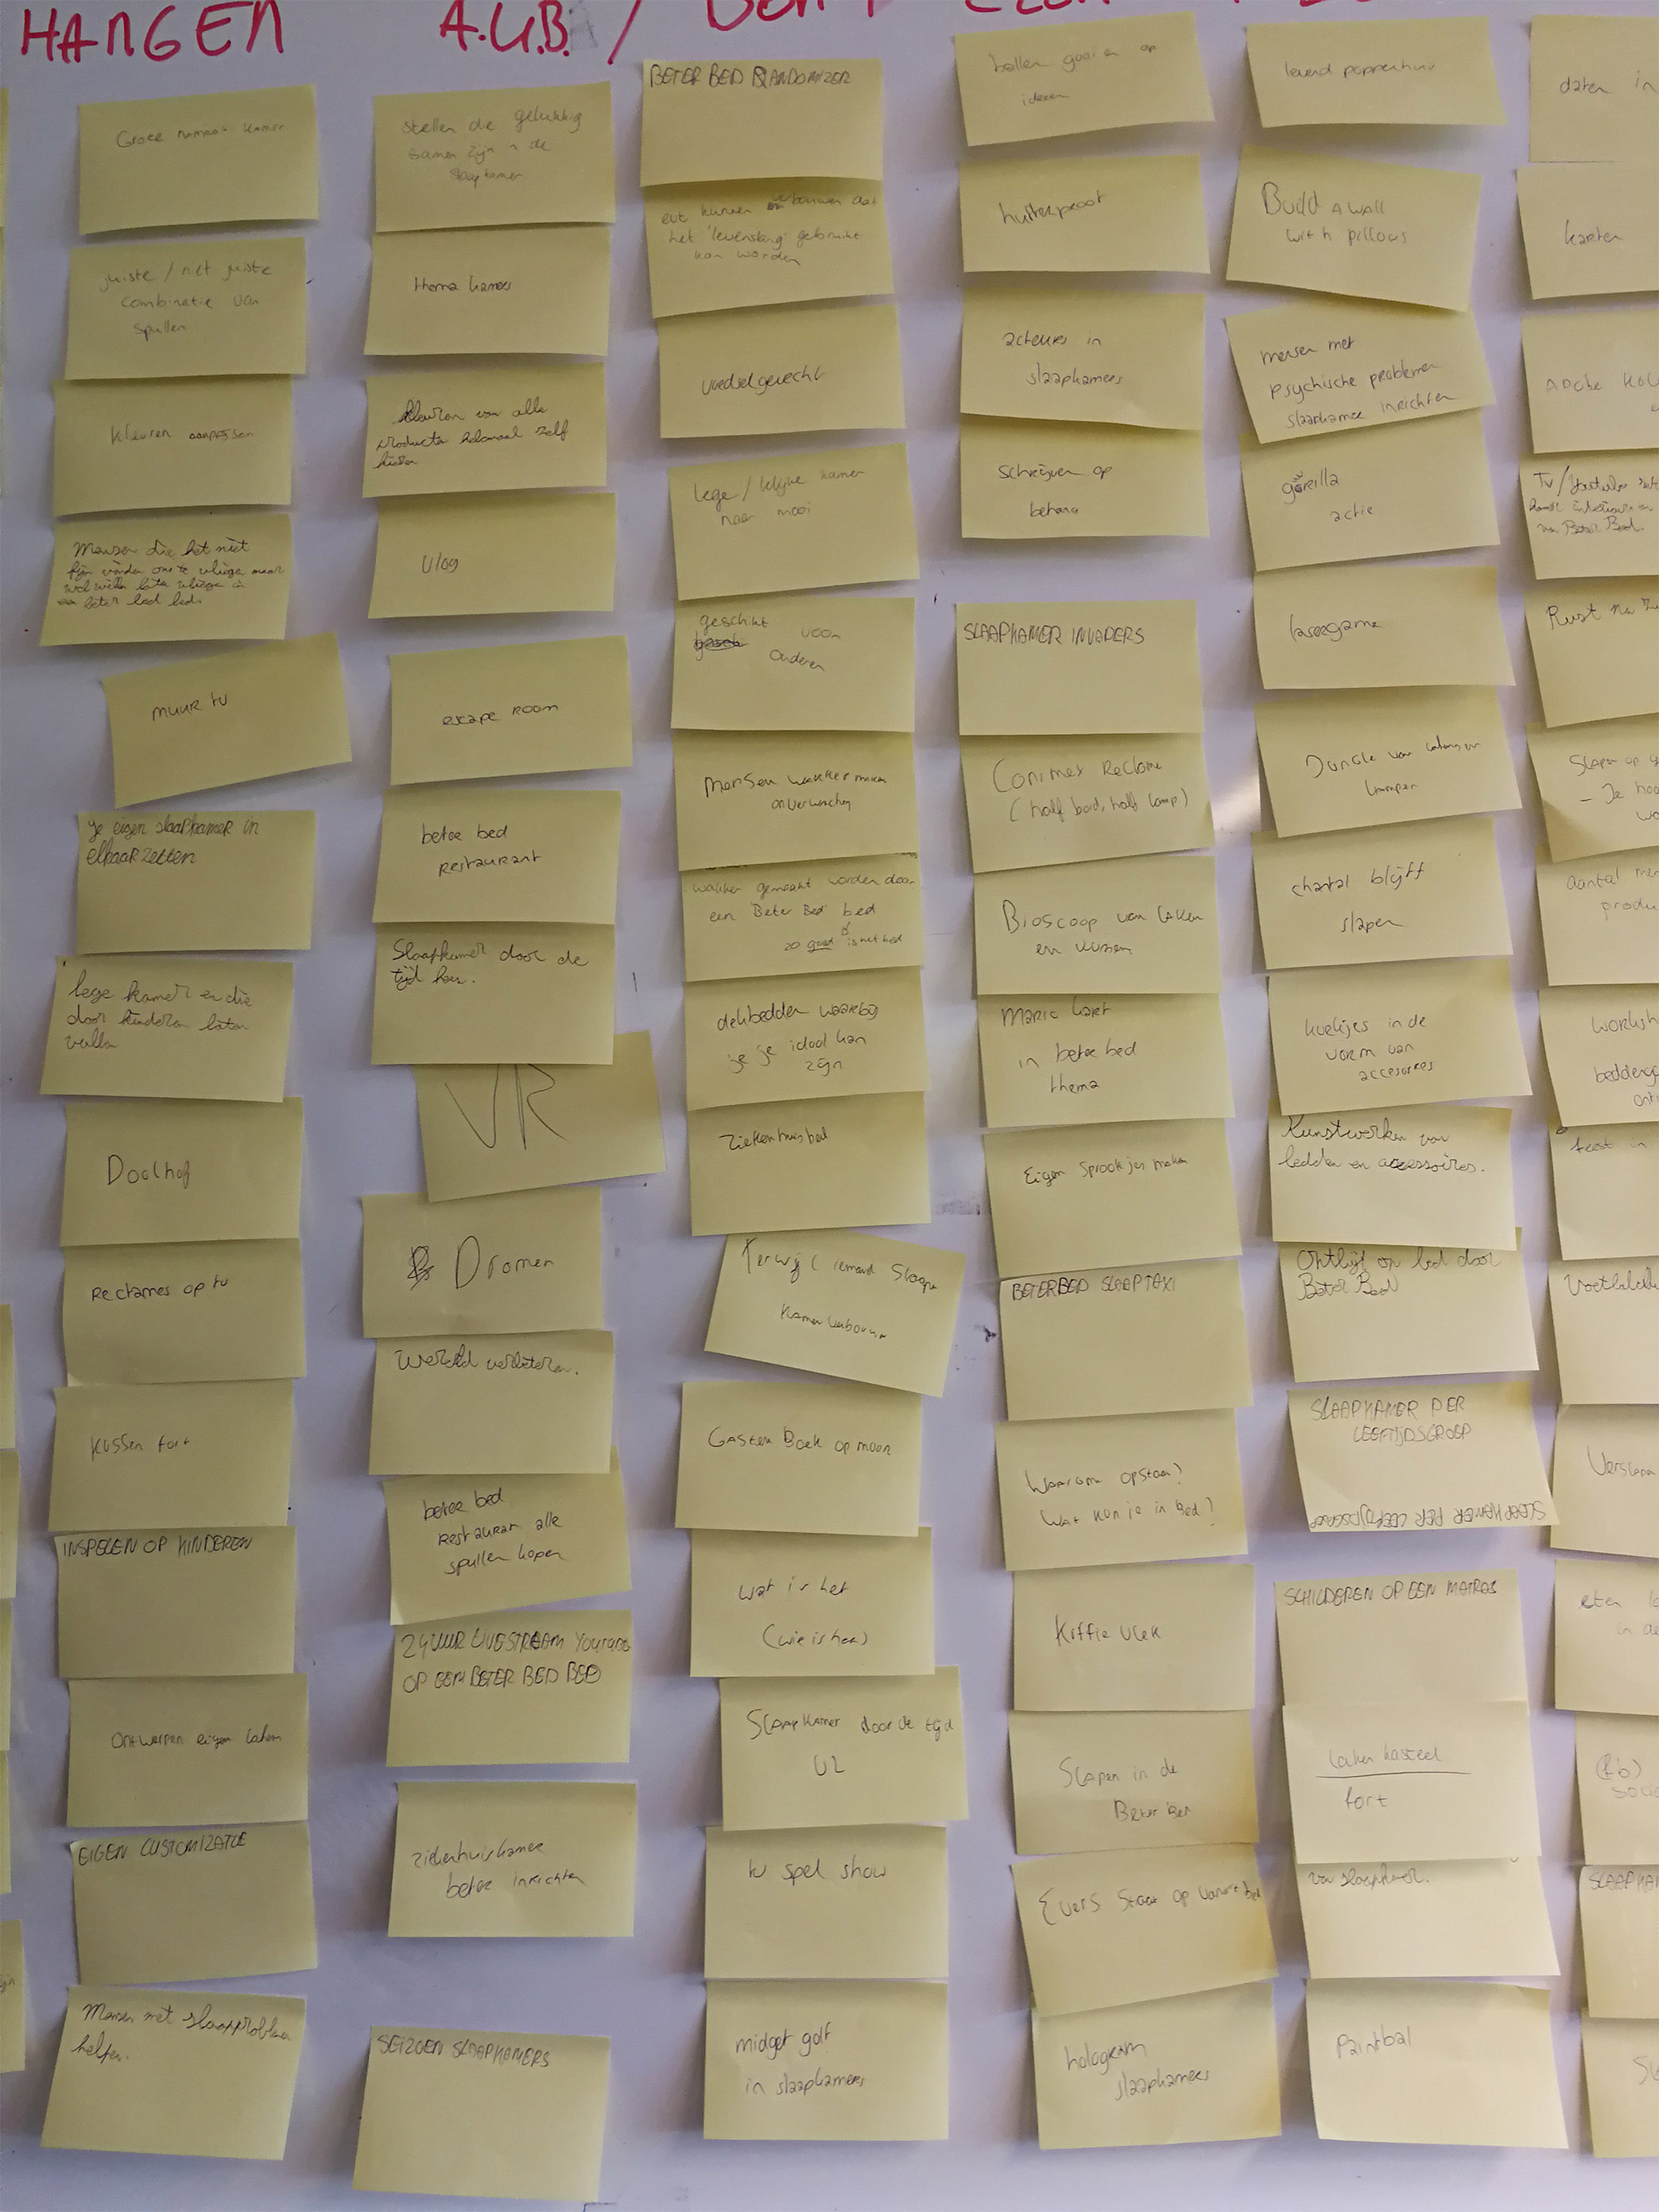 HANGEN A.U.B. /
Grote namaak kamer
juiste / niet juiste
combinatie van
spullen
kleuren aanpassen
Mensen die het niet
fijn vinden om te vliegen maar
wel willen late vliegen in
een beter bed bed.
muur tv
je eigen slaapkamer in
elkaar zetten
lege kamer en die
door kinderen laten
vullen
Doolhof
Reclames op tv
Kussen fort
INSPELEN OP KINDEREN
Ontwerpen eigen laken
EIGEN CUSTOMIZATIE
Mensen met slaapproblemen
helpen.
stellen die gelukkig
samen zijn in de
slaapkamer
thema kamers
kleuren van alle
producten helemaal zelf
kiezen
Vlog
escape room
beter bed
restaurant
Slaapkamer door de
tijd heen.
VR
Dromen
Wereld verbeteren.
beter bed
restaurant alle
spullen kopen
24 UUR LIVESTREAM
OP EEN BETER BED BED
ziekenhuiskamer
beter inrichten
SEIZOEN SLAAPKAMERS
BETER BED RANDOMIZER
kunnen verbouwen dat
het 'levenslang' gebruikt
kan worden
voedselgevecht
lege / lelijke kamer
naar mooi
geschikt voor
ouderen
Mensen wakker maken
onverwachts
wakker gemaakt worden door
een Beter Bed bed
zo goed is het bed
dekbedden waarbij
je je idool kan
zijn
Ziekenhuisbed
Terwijl iemand slaapt
kamer verbouwen
Gasten Boek op muur
wat is het
(wie is het)
Slaapkamer door de tijd
V2
tv spel show
midget golf
in slaapkamers
ballen gooien op
ideeen
hufterproof
acteurs in
slaapkamers
schrijven op
behang
SLAAPKAMER INVADERS
Conimex Reclame
(half bord, half lamp)
Bioscoop van laken
en kussen
Mario kart
in beter bed
thema
Eigen Sprookjes maken
BETERBED SLAAPTAXI
Waarom opstaan?
Wat kun je in bed?
Koffie vlek
Slapen in de
Beter Bed
Evers Staat op vanuit bed
hologram
slaapkamers
levend poppenhuis
Build a wall
with pillows
mensen met
psychische problemen
slaapkamer inrichten
gorilla
actie
lasergame
Jungle van lakens en
lampen
chantal blijft
slapen
koekjes in de
vorm van
accesoires
Kunstwerken van
bedden en accessoires.
Ontbijt op bed door
Beter Bed
SLAAPKAMER PER
LEEFTIJDSGROEP
SLAAPKAMER PER LEEFTIJDSGROEP
SCHILDEREN OP EEN MATRAS
laken kasteel
fort
van slaapkamer.
Paintbal
daten in
karten
TV/Youtube
van Beter Bed
Rust
Slapen op
- Je
Aantal
produ
Worksh
beddeng
feest in
Voetbal
eten
in de